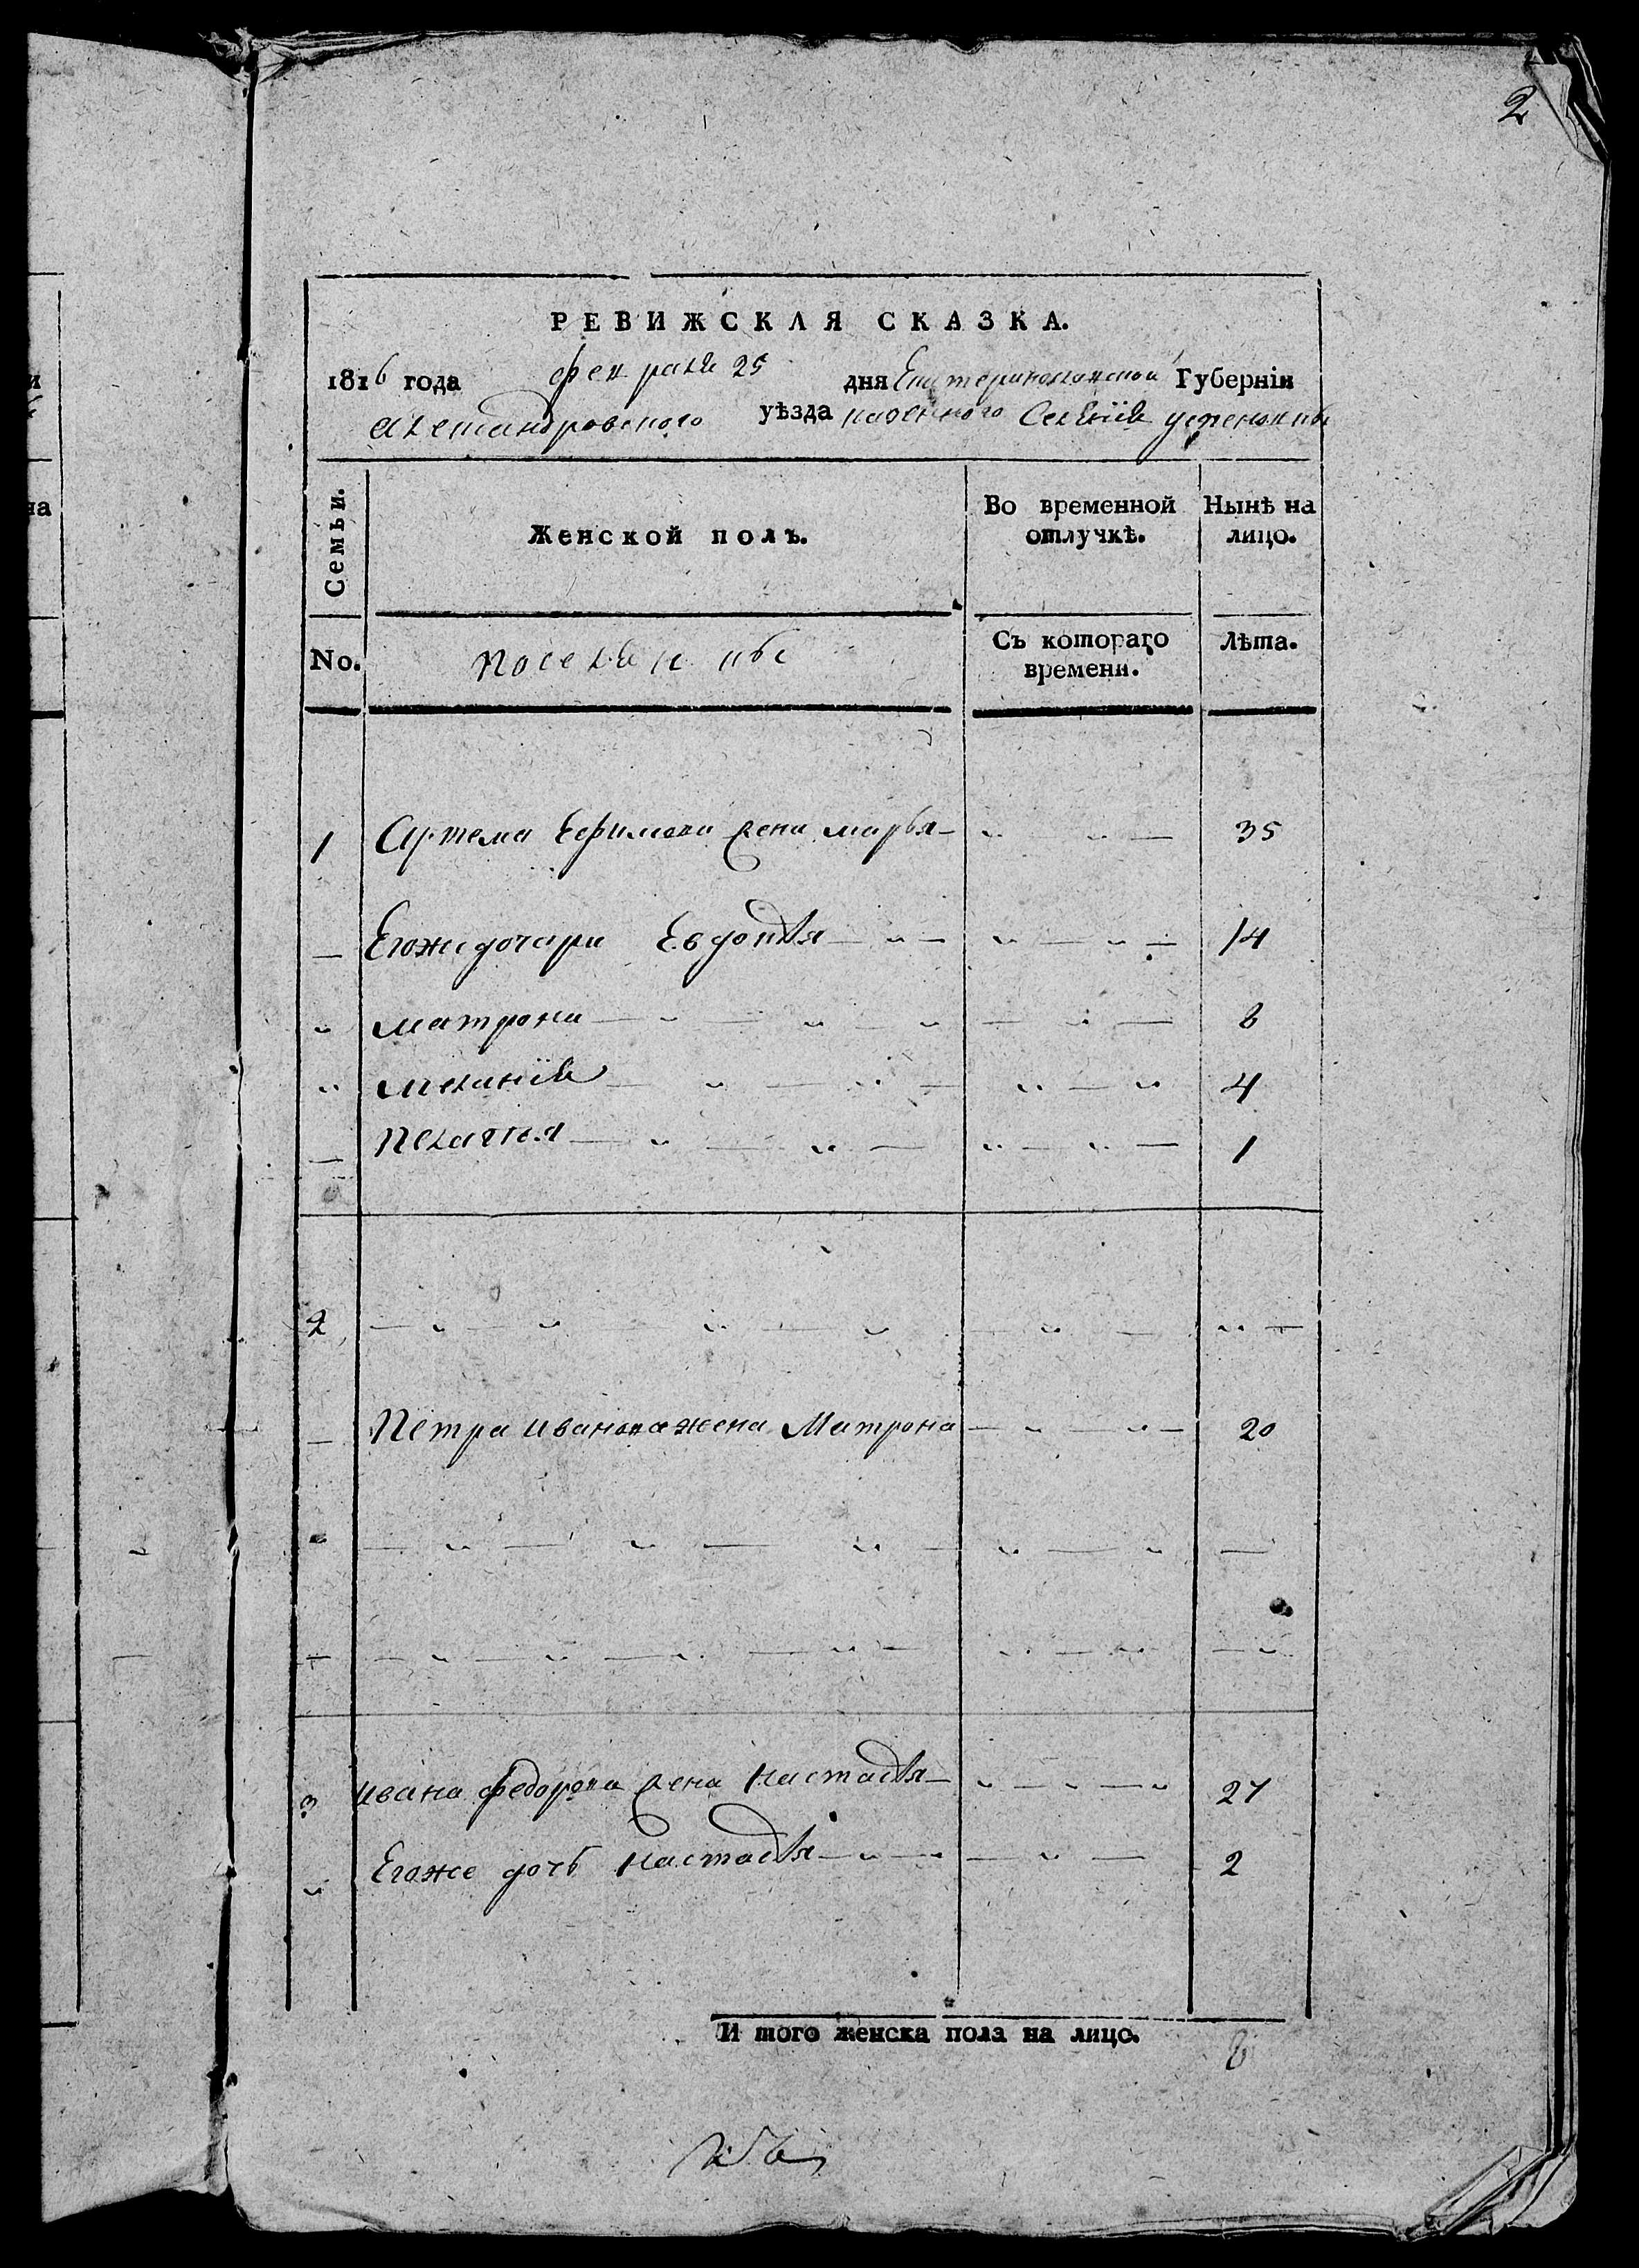 2
РЕВИЖСКАЯ СКАЗКА.
1816 года февраля 25 дня Екатеринославской Губернїи
Александровского уѣзда казенного Селенїя
Семьи.
Женской полъ.
Во временной отлучкѣ.
Нынѣ на лицо.
No.
поселяне
Съ котораго времени.
Лѣта.
1 Артема Ефимова жена марья 35
Егоже дочери Евдокия 14
матрона 8
меланїя 4
Пелагея 1
2
Петра Иванова жена Матрона 20
3 Ивана Федорова жена Настасия 27
Егоже дочь Настасия 2
И того женска пола на лицо. 8